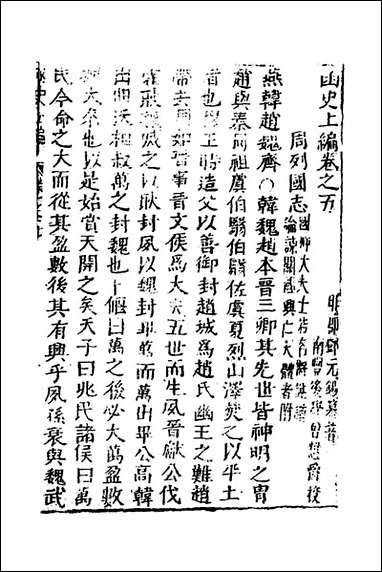 函史上編卷之五
鄧元錫纂著
南豐後學曾懋爵校
周列國志
國卿大夫士
論諫關感興亡大體者附
燕韓趙魏齊○韓魏趙本晉三卿其先世皆神明之胄
趙與秦同祖虞伯翳伯翳佐虞夏烈山澤焚之以平土
者也穆王時造父以善御封趙城爲趙氏幽王之難趙
帶去周如晉事晉文侯爲大夫五世而生夙晉獻公伐
霍耿魏滅之以耿封夙以魏封畢萬而萬出畢公高韓
出曲沃桓叔萬之封魏也卜偃曰萬之後必大萬盈數
魏大名也以是始賞天開之矣天子曰兆民諸侯曰萬
民今命之大而從其盈數後其有興乎夙孫衰與魏武